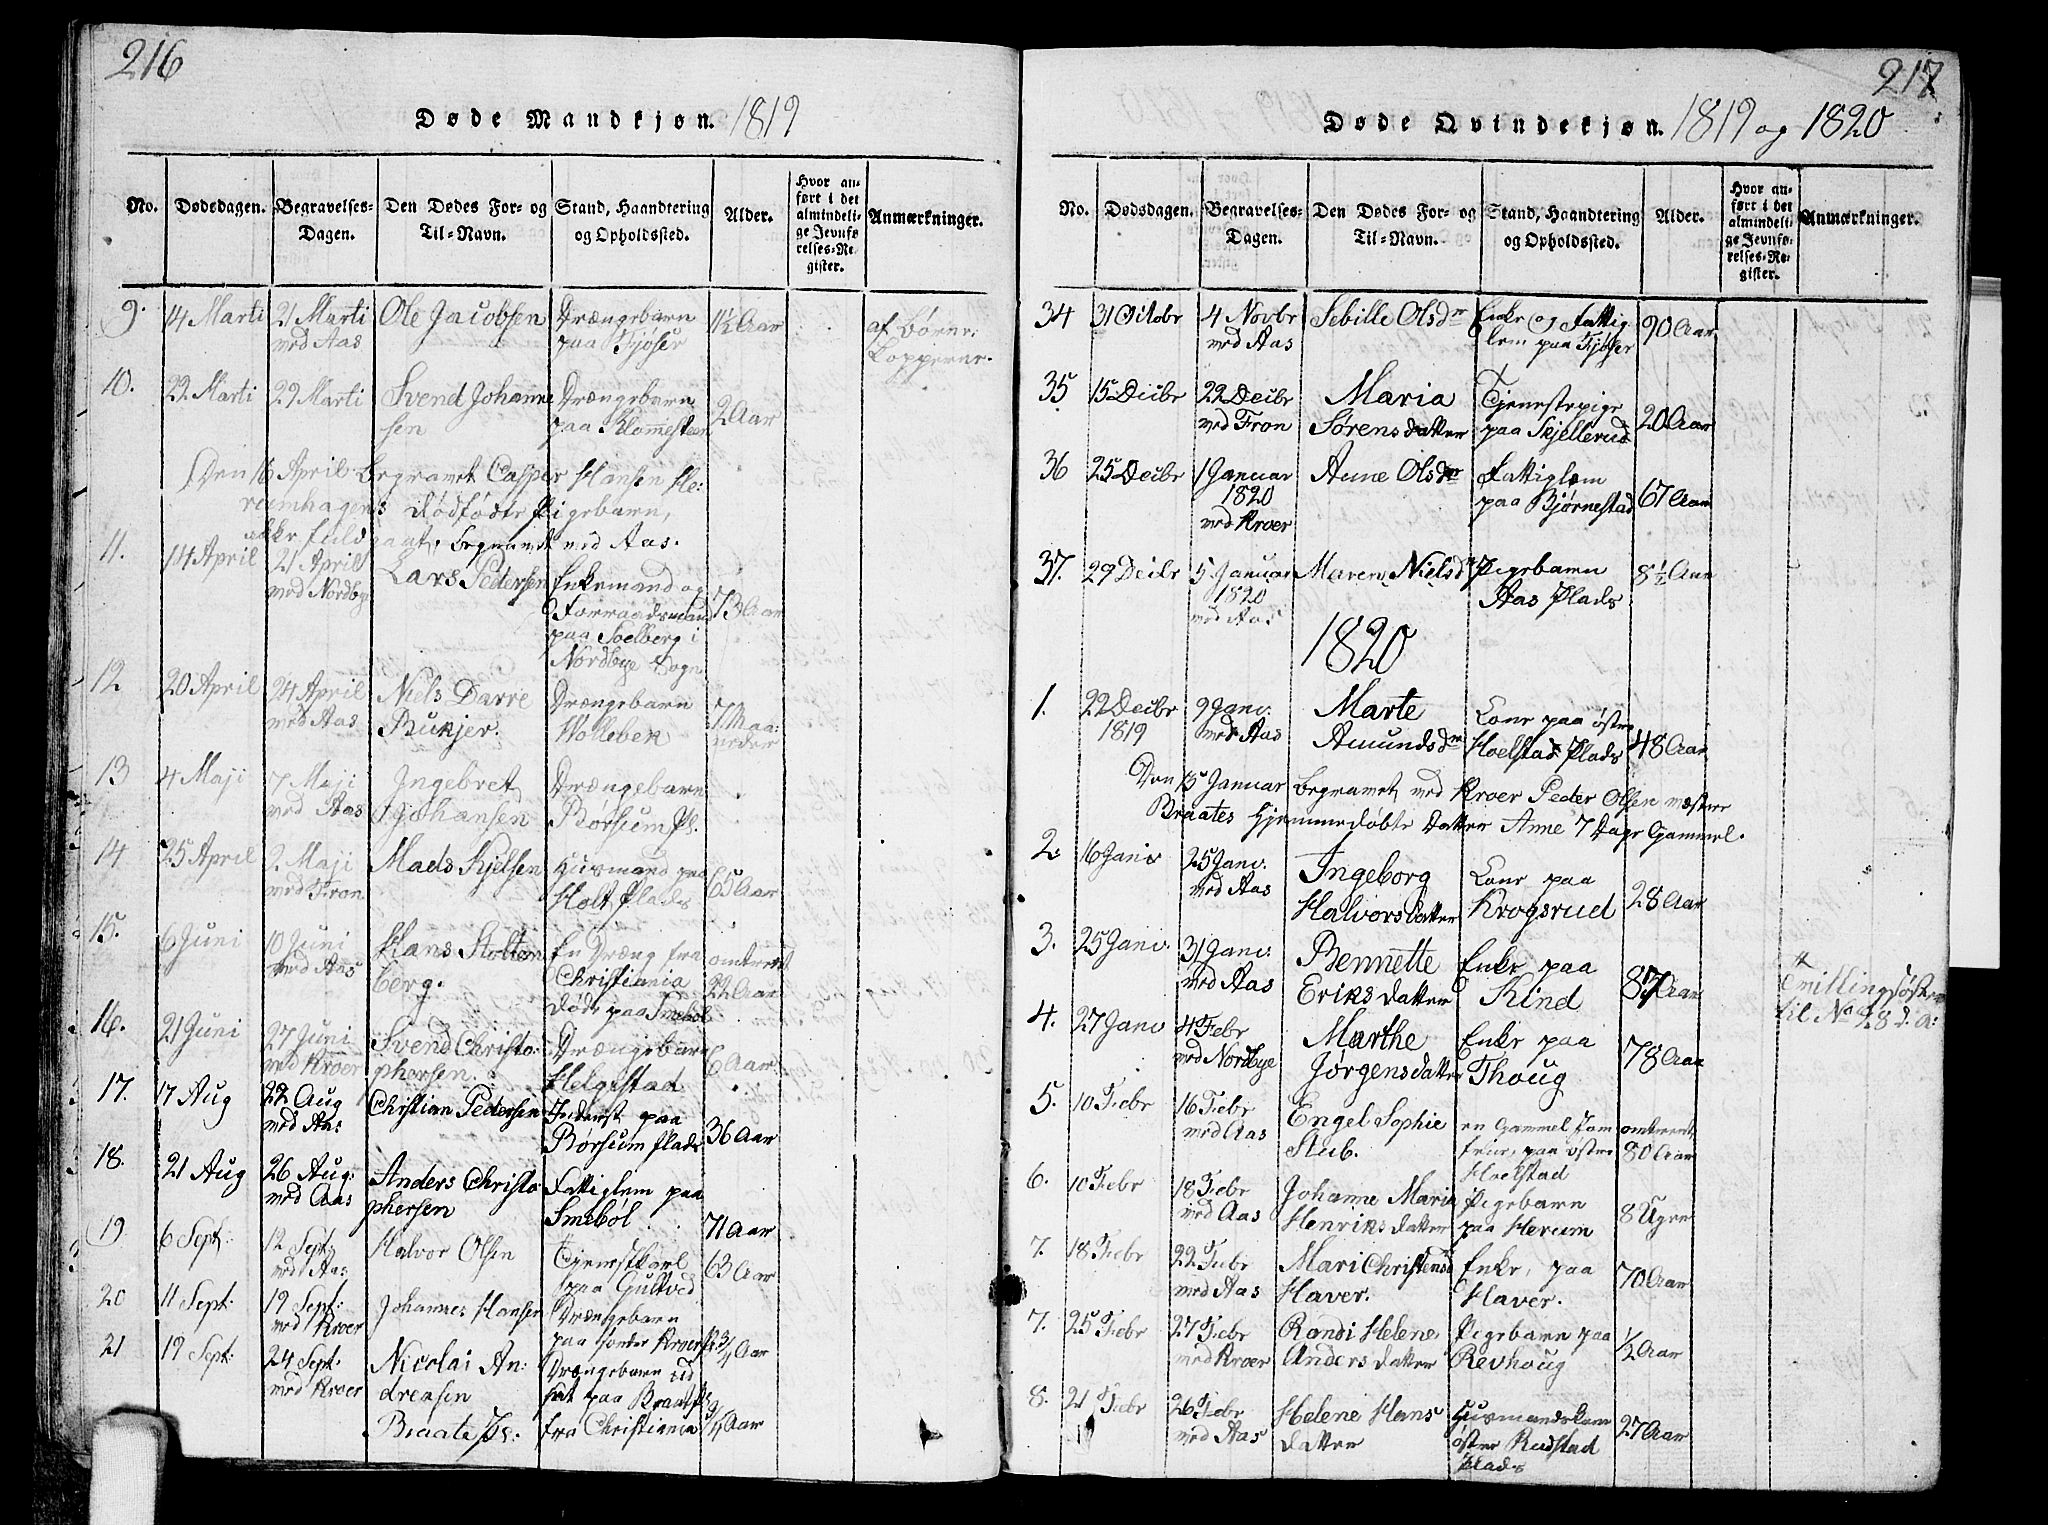 216
Døde Mandkjøn. 1819
No.
Dødsdagen.
Begravelses-
Dagen.
Den Dødes For- og
Til-Navn.
Stand, Haandtering
og Opholdssted.
Alder.
Hvor an-
ført i det
almindeli-
ge Jevnfø-
relses-Re-
gister.
Anmærkninger.
9. 14 Marti 21 Marti Ole Jacobsen Drængebarn 1½ Aar af Børne
med Aas paa Kjøser Kopperne.
10. 22 Marti 29 Marti Svend Johanne Drængebarn 2 Aar
sen paa Blommesteen
Den 16 April begravet Casper Hansen
dødfødte Pigebarn,
ikke fuld begravet med Aas.
11. 14 April 21 April Lars Pedersen Enkemand og 73 Aar
med Nordby Forraadsmand
paa Soelberg i
Nordbye Sogn
12 20 April 24 April Niels Darre Drængebarn 7 Maa
med Aas Bukjer. Wollebek neder
13 4 Maji 7 Maji Ingebret Drængebarn
med Aas Johansen Børsum Pl.
14 25 April 2 Maji Mads Kjelsen Huusmand paa 65 Aar
med Kron Holt Plads
15. 6 Juni 10 Juni Hans Stolten En Dræng fra omtrent
med Aas berg. Christiania 22 Aar
døde paa Smebøl
16. 21 Juni 27 Juni Svend Christo- Drængebarn 6 Aar
med Kroer phersen. Helgestad
17. 17 Aug 22 Aug Christian Pedersen Inderst paa 36 Aar
med Aas Borsum Plads
18. 21 Aug 26 Aug: Anders Christo Fattiglem paa 71 Aar
med Aas phersen Smebøl
19. 6 Sept: 12 Sept: Halvor Olsen Tjenestkarl 63 Aar
med Aas paa Gultved
20 11 Sept: 19 Sept: Johannes Hansen Drængebarn
med Kroer paa Kroer 3/4 Aar
21 19 Sept: 24 Sept: Nicolai An: Drængebarn ud
med Kroer dreasen sat paa Braate
Braate Pl: fra Christiania Aar
217
Døde Qvindekjøn. 1819 og 1820
No.
Dødsdagen.
Begravelses-
Dagen.
Den Dødes For- og
Til-Navn.
Stand, Haandtering
og Opholdssted.
Alder.
Hvor an-
ført i det
almindeli-
ge Jevnfø-
relses-Re-
gister.
Anmærkninger.
34 31 Octobr 4 Novbr Sebille Olsdr Enke og Fattig 90 Aar
med Aas lem paa Kjøser
35 15 Decbr 22 Decbr Maria Tjenestepige 20 Aar
med Fron Sørensdatter paa Skjellerud
36 25 Decbr 1 Januar Anne Olsdr Fattiglem 67 Aar
1820 paa Bjørnestad
med Kroer
37. 29 Decbr 5 Januar Maren Nielsd Pigebarn 8½ Aar
1820 Aas Plads
med Aas
1820
1. 22 Decbr 9 Janv. Marte Kone paa østre 48 Aar
1819 med Aas Amundsdr Hoelstad Plads
Den 15 Januar begravet med Kroer Peder Olsen
Braates Hjemmedøbte Datter Anne 7 Dage Gammel.
2. 16 Janv 25 Janv. Ingeborg Kone paa 28 Aar
med Aas Halvorsdatter Krogsrud
3. 25 Janv. 31 Janv. Bennette Enke paa 87 Aar
med Aas Eriksdatter Kind
Tvillingsøster
til No 28 d. A:
4. 27 Janv 4 Febr Marthe Enke paa 78 Aar
med Nordbye Jørgensdatter Thoug
5. 10 Febr 16 Febr Engel Sophie en Gammel Jom omtrent
med Aas Stub. frue, paa østre 80 Aar
Hoelstad
6. 10 Febr 18 Febr Johanne Maria Pigebarn 8 Uger
med Aas Henriksdatter paa Herum
7. 18 Febr 22 Febr Mari Christensd Enke, paa 70 Aar
med Aas Haver. Haver.
7. 25 Febr 27 Febr Randi Helene Pigebarn paa ½ Aar
med Kroer Andersdatter Revhoug
8. 21 Febr 26 Febr Helene Hans Huusmandskone 27 Aar
med Aas datter østre Rudstad
Plads